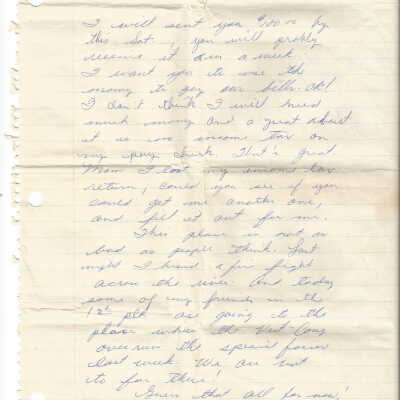 I will sent you 900.00 by
this Sat., you will probly
receive it over a week.
I want you to use the
money to pay our bills. OK!
I don't think I will need
much money and a great about
it is no income tax on
my pay check. That's great
Mom I lost my income tax
return, could you see if you
could get me another one,
and fill it out for me.
This place is not as
bad as people think. Last
night I heard a fire fight
across the river. And today
some of my friends in the
1st plt are going to the
place where the Viet Cong
overrun the special forces
last week. We are not
to far there!
Guess that all for now!